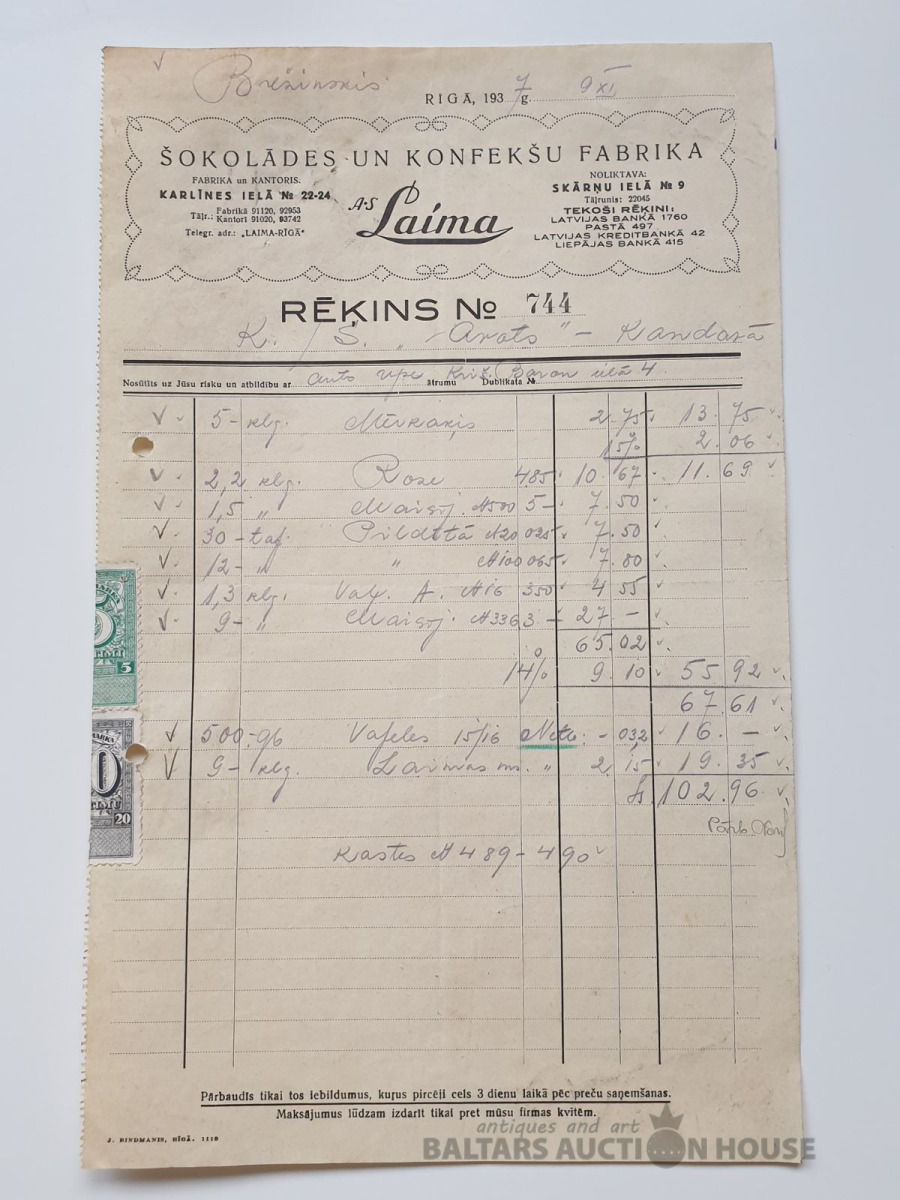 Brežinskis
RIGĀ, 1937 g. 9 XI
ŠOKOLĀDES UN KONFEKŠU FABRIKA
FABRIKA un KANTORIS.
KARLĪNES IELĀ № 22-24
Tāļr.: Fabrikā 91120, 92953
Kantorī 91020, 93742
Telegr. adr.: „LAIMA-RĪGĀ"
A-S Laima
NOLIKTAVA:
SKĀRŅU IELĀ № 9
Tāļrunis: 22045
TEKOŠI RĒĶINI:
LATVIJAS BANKĀ 1760
PASTĀ 497
LATVIJAS KREDITBANKĀ 42
LIEPĀJAS BANKĀ 415
RĒĶINS № 744
K. /S. „Avots" - Kandavā
Nosūtīts uz Jūsu risku un atbildību ar auto upe Kriš. Baron ielā 4. ātrumu Dublikata №
5- klg. 2.75 13.75
15% 2.06
2,2 klg. Roze 485 10.67 11.69
1,5 " Maisij. №500 5- 7.50
30- taf. Pildītā №20 025 7.50
12- " " №100 065 7.80
1,3 klg. Vaf. A. №16 350 4 55
9- " Maisij. №336 3- 27 -
65.02
14% 9.10 55.92
67.61
500-gb Vafeles 15/16 Neto - 032 16. -
9- klg. Laimas ms. " 2.15 19.35
Ls 102.96
Kastes № 489-490
5
20
Pārbaudīs tikai tos iebildumus, kuŗus pircēji cels 3 dienu laikā pēc preču saņemšanas.
Maksājumus lūdzam izdarīt tikai pret mūsu firmas kvītēm.
J. RINDMANIS, RĪGĀ. 1110
antiques and art
BALTARS AUCTION HOUSE